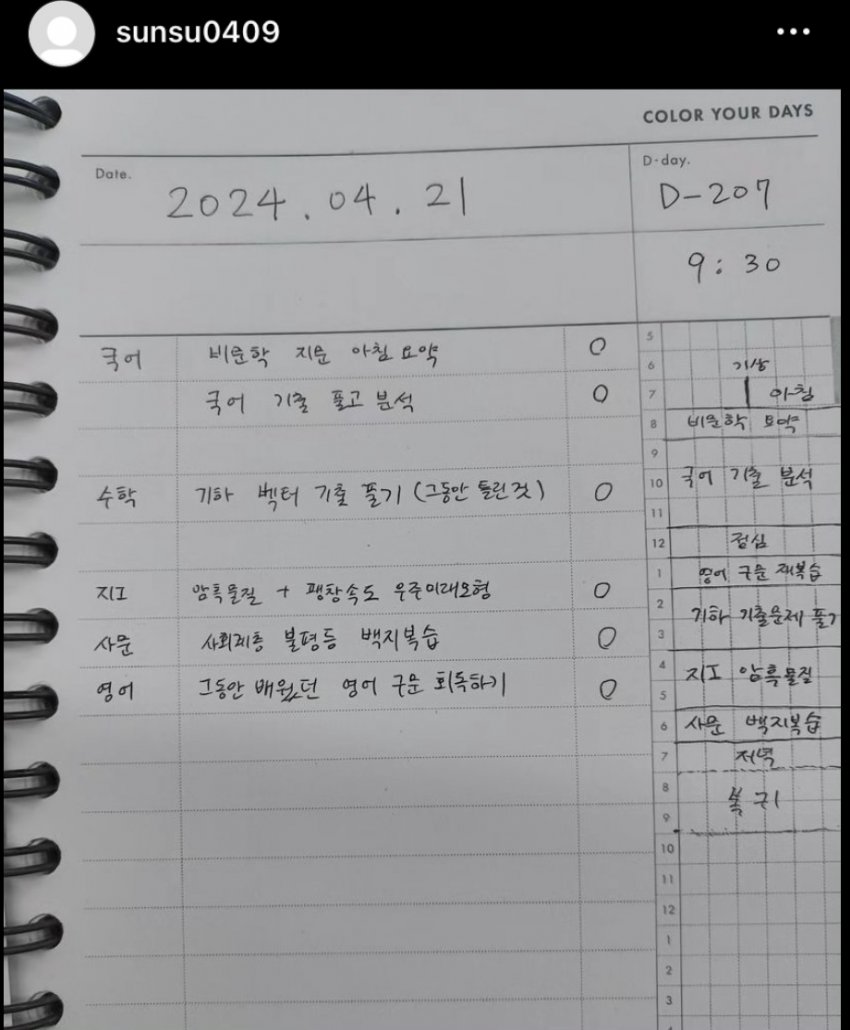 sunsu0409
COLOR YOUR DAYS
Date.
2024.04.21
D-day.
D-207
9:30
국어 비문학 지문 아침 요약 O
국어 기출 풀고 분석 O
수학 기하 벡터 기출 풀기 (그동안 틀린것) O
지I 암흑물질 + 팽창속도 우주미래모형 O
사문 사회계층 불평등 백지복습 O
영어 그동안 배웠던 영어 구문 회독하기 O
5
6 기상
7 아침
8 비문학 요약
9
10 국어 기출 분석
11
12 점심
1 영어 구문 재복습
2 기하 기출문제 풀기
3
4 지I 암흑물질
5
6 사문 백지복습
7 저녁
8 복귀
9
10
11
12
1
2
3